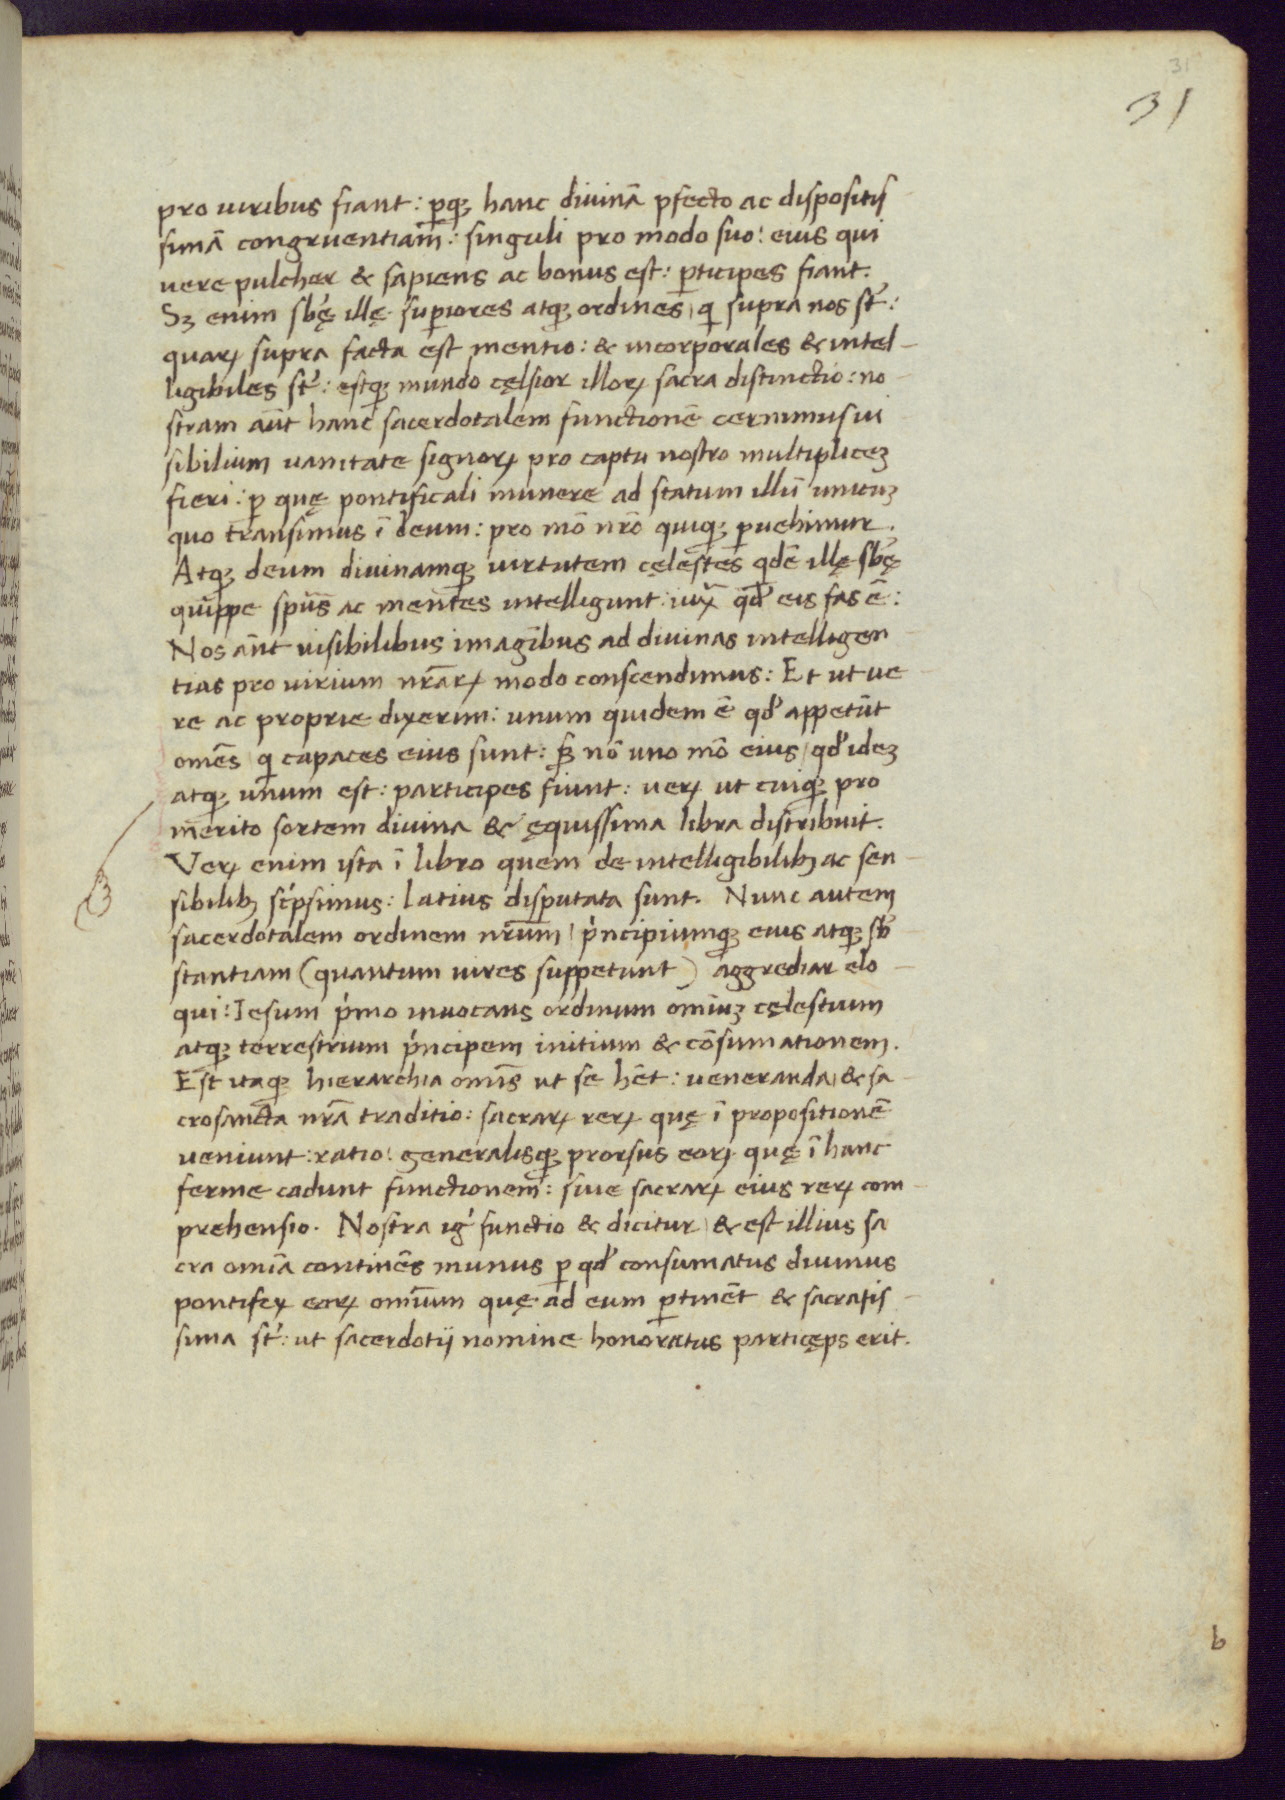 31
31
pro uiribus fiant: ꝑqꝫ hanc diuinā ꝑfecto ac dispositis
simā congruentiam̄: singuli pro modo suo: eius qui
uere pulcher & sapiens ac bonus est: ꝑticipes fiant.
Sꝫ enim sb̄ę illę suꝑiores atqꝫ ordines, q supra nos st̄:
quaꝝ supra facta est mentio: & incorporales & intel-
ligibiles st̄: estqꝫ mundo cęlsior illoꝝ sacra distinctio: no-
stram aūt hanc sacerdotalem functionē cernimus ui
sibilium uarietate signoꝝ pro captu nostro multipliceꝫ
fieri: ꝑ quę pontificali munere ad statum illū unituꝫ
quo transimus ī deum: pro mō nr̄o quiqꝫ ꝑuehimur.
Atqꝫ deum diuinamqꝫ uirtutem cęlestes qdē illę sb̄ę
quippe spūs ac mentes intelligunt: iux̄ qd̄ eis fas ē:
Nos aūt uisibilibus imaginibus ad diuinas intelligen-
tias pro uirium nr̄aꝝ modo conscendimus: Et ut ue-
re ac proprie dixerim: unum quidem ē qd̄ appetūt
omēs, q capaces eius sunt: sꝫ nō uno mō eius, qd̄ ideꝫ
atqꝫ unum est: participes fiunt: ueꝝ ut cuiqꝫ pro
merito sortem diuina & ęquissima libra distribuit.
Veꝝ enim ista ī libro quem de intelligibilibꝫ ac sen-
sibilibꝫ sc̍psimus: latius disputata sunt. Nunc autem
sacerdotalem ordinem nr̄um, p̍ncipiumqꝫ eius atqꝫ sb̄-
stantiam (quantum uires suppetunt) aggrediar elo-
qui: Iesum p̍mo inuocans ordinum omīuꝫ cęlestium
atqꝫ terrestrium p̍ncipem initium & cōsumationem.
Est itaqꝫ hierarchia omīs ut se hēt: ueneranda, & sa-
crosancta nr̄a traditio: sacraꝝ reꝝ quę ī propositionē
ueniunt: ratio: generalisqꝫ prorsus eoꝝ quę ī hanc
ferme cadunt functionem: siue sacraꝝ eius reꝝ com-
prehensio. Nostra ig̍ functio & dicitur, & est illius sa
cra omīa continēs munus ꝑ qd̄ consumatus diuinus
pontifex eoꝝ omīum quę ad eum ꝑtinēt & sacratis-
sima st̄: ut sacerdotij nomine honoratus particęps erit.
b